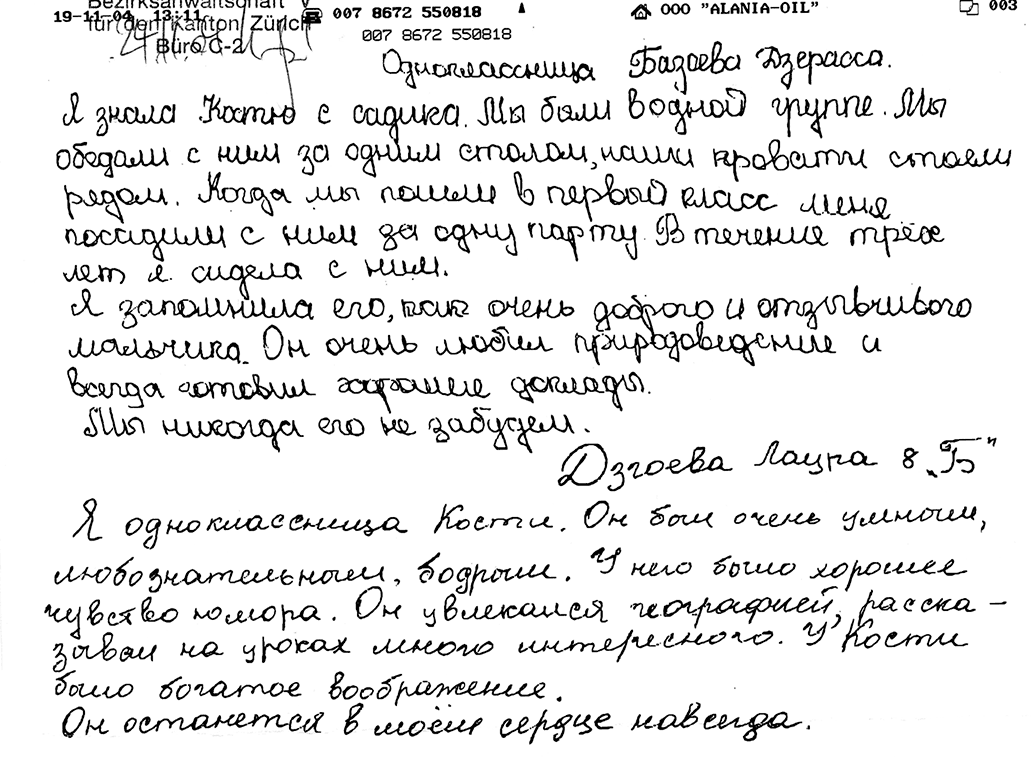 Bezirksanwaltschaft V
19-11-04 13:11 007 8672 550818 ООО "ALANIA-OIL" 003
für den Kanton Zürich
007 8672 550818
Büro C-2
Одноклассница Базаева Дзерасса.
Я знала Костю с садика. Мы были в одной группе. Мы
обедали с ним за одним столом, наши кровати стояли
рядом. Когда мы пошли в первый класс меня
посадили с ним за одну парту. В течение трёх
лет я сидела с ним.
Я запомнила его, как очень доброго и отзывчивого
мальчика. Он очень любил природоведение и
всегда готовил хорошие доклады.
Мы никогда его не забудем.
Дзгоева Лацна 8 „Б"
Я одноклассница Кости. Он был очень умным,
любознательным, бодрым. У него было хорошее
чувство юмора. Он увлекался географией, расска-
зывал на уроках много интересного. У Кости
было богатое воображение.
Он останется в моём сердце навсегда.